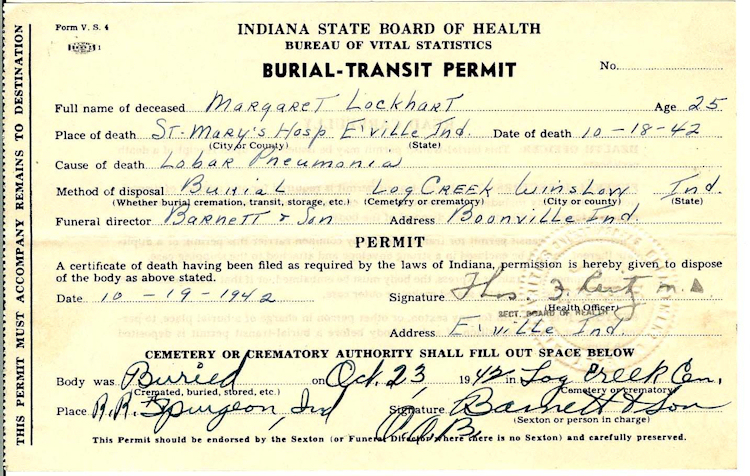 THIS PERMIT MUST ACCOMPANY REMAINS TO DESTINATION
Form V. S. 4
1
INDIANA STATE BOARD OF HEALTH
BUREAU OF VITAL STATISTICS
BURIAL-TRANSIT PERMIT
No.
Full name of deceased Margaret Lockhart Age 25
Place of death St. Mary's Hosp E'ville Ind. Date of death 10-18-42
(City or County) (State)
Cause of death Lobar Pneumonia
Method of disposal Burial Log Creek Winslow Ind.
(Whether burial, cremation, transit, storage, etc.) (Cemetery or crematory) (City or county) (State)
Funeral director Barnett & Son Address Boonville Ind.
PERMIT
A certificate of death having been filed as required by the laws of Indiana, permission is hereby given to dispose
of the body as above stated.
Date 10-19-1942 Signature M.D
(Health Officer)
SECT. BOARD OF HEALTH
Address E'ville Ind
CEMETERY OR CREMATORY AUTHORITY SHALL FILL OUT SPACE BELOW
Body was Buried on Oct. 23, 1942 in Log Creek Cem,
(Cremated, buried, stored, etc.) (Cemetery or crematory)
Place R.R. Spurgeon, Ind Signature Barnett & Son
(Sexton or person in charge)
This Permit should be endorsed by the Sexton (or Funeral Director where there is no Sexton) and carefully preserved.